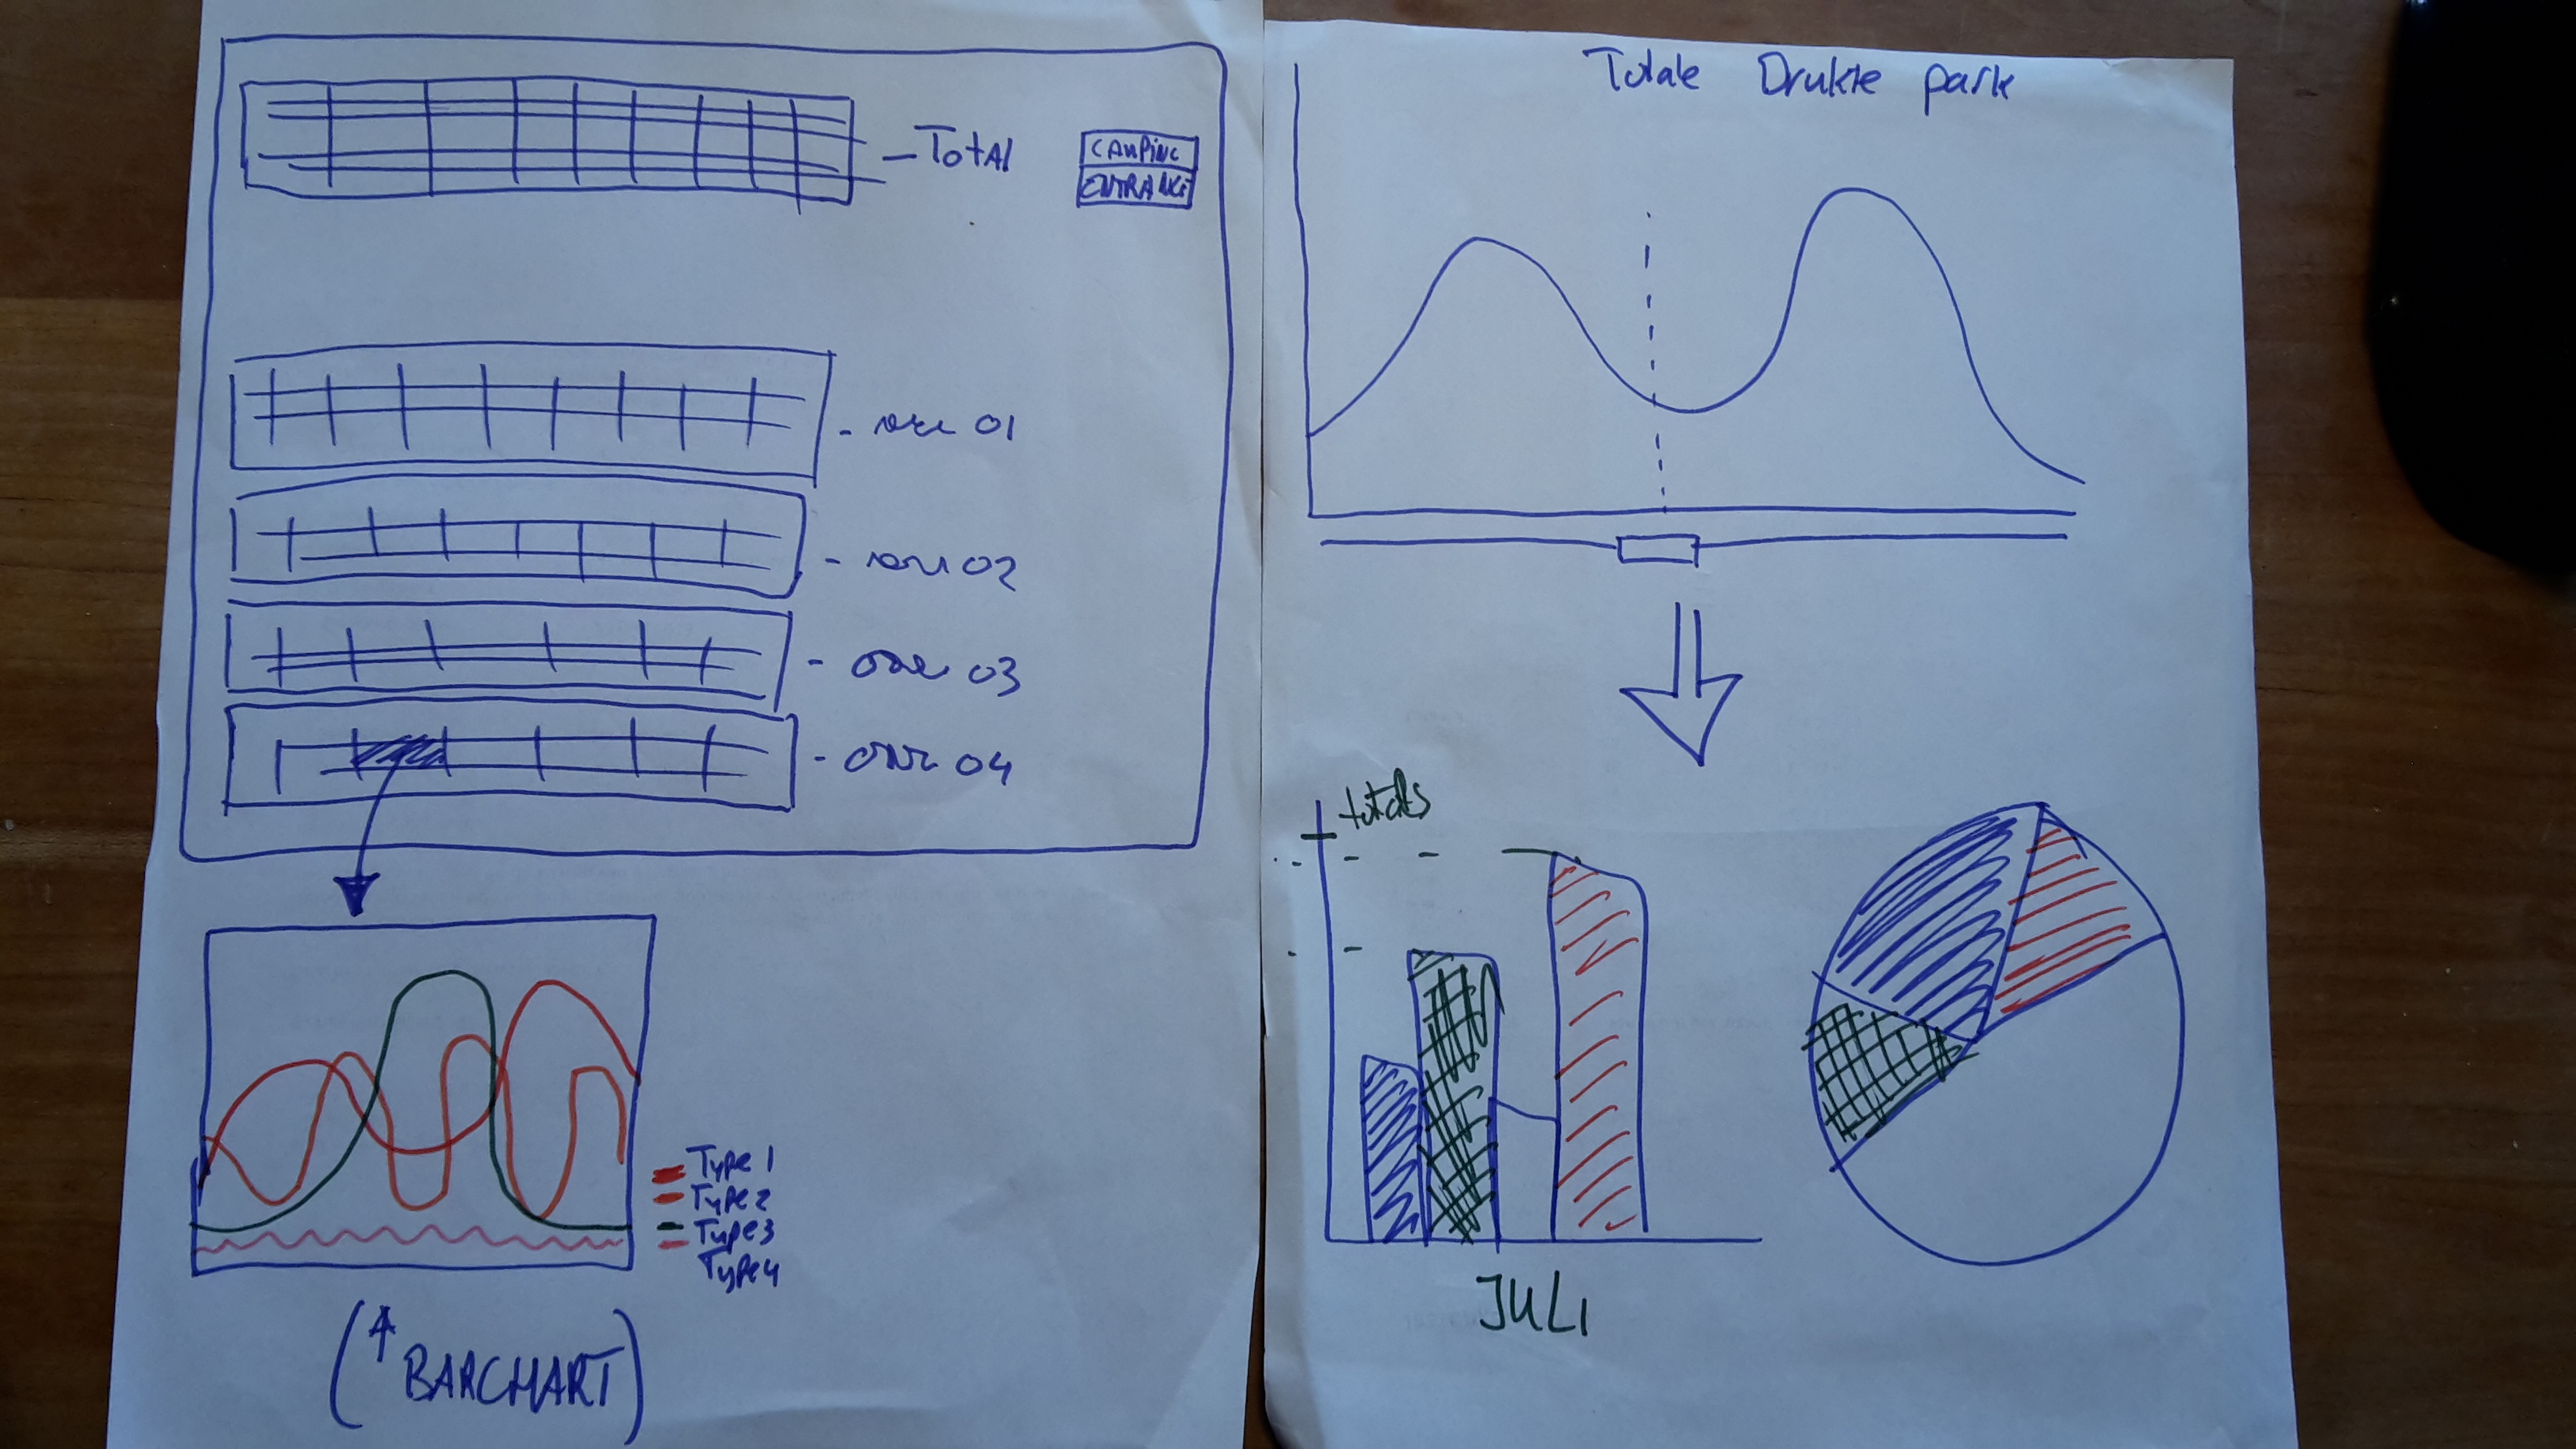 - Total
CAMPING
ENTRANCE
01
02
03
04
Type 1
Type 2
Type 3
Type 4
(A BARCHART)
Totale Drukte park
+ totals
JULI